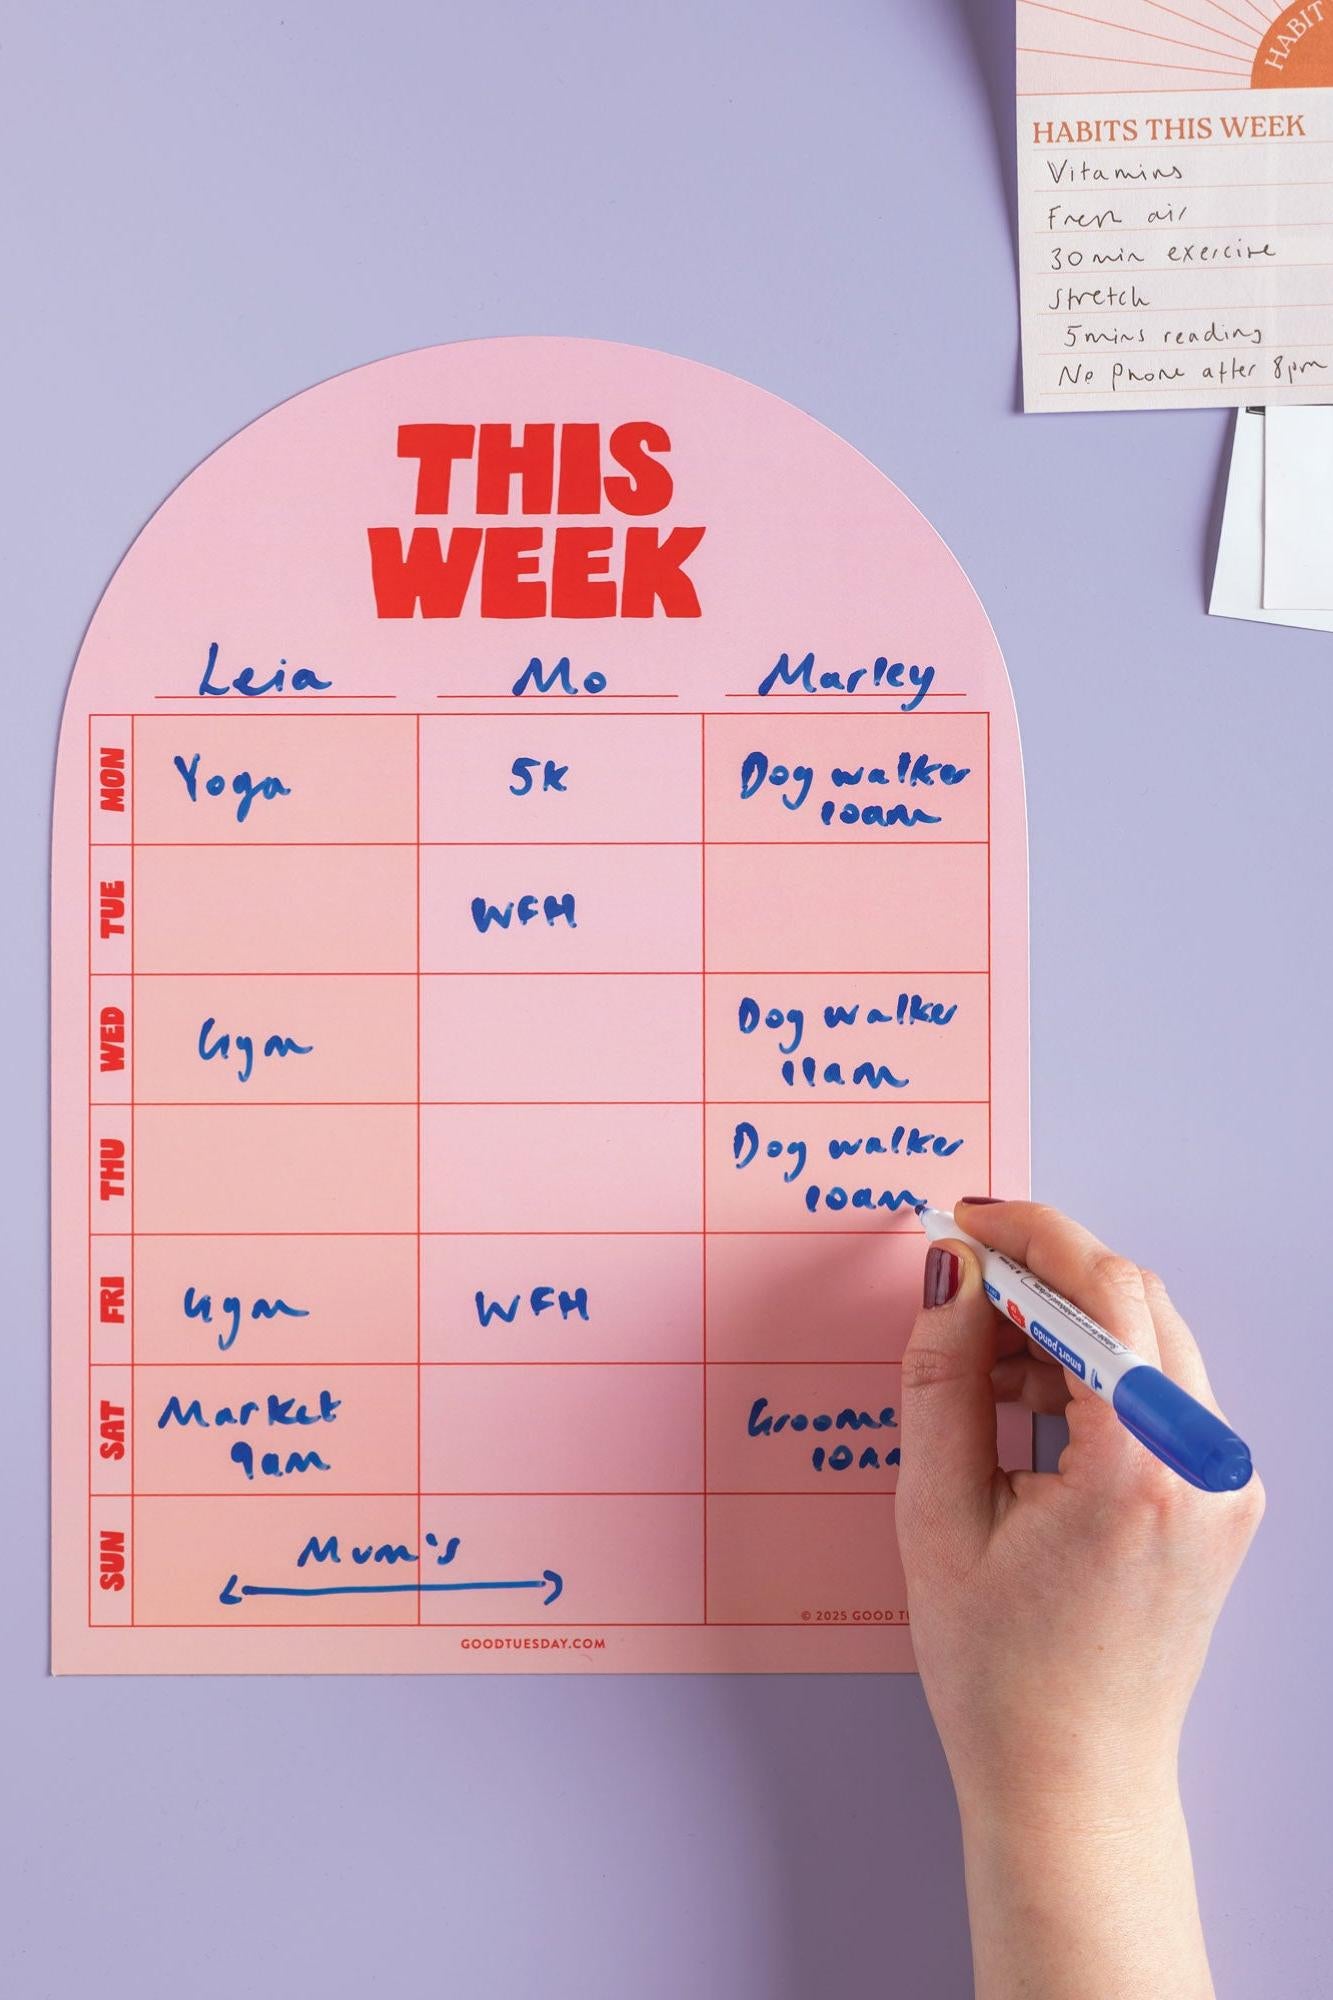 HABIT
HABITS THIS WEEK
Vitamins
Fresh air
30 min exercise
Stretch
5mins reading
No phone after 8pm
THIS
WEEK
Leia Mo Marley
MON Yoga 5k Dog walker
10am
TUE WFH
WED Gym Dog walker
11am
THU Dog walker
10am
FRI Gym WFH
SAT Market Groome
9am 10am
SUN Mum's
© 2025 GOOD TU
GOODTUESDAY.COM
smart panda